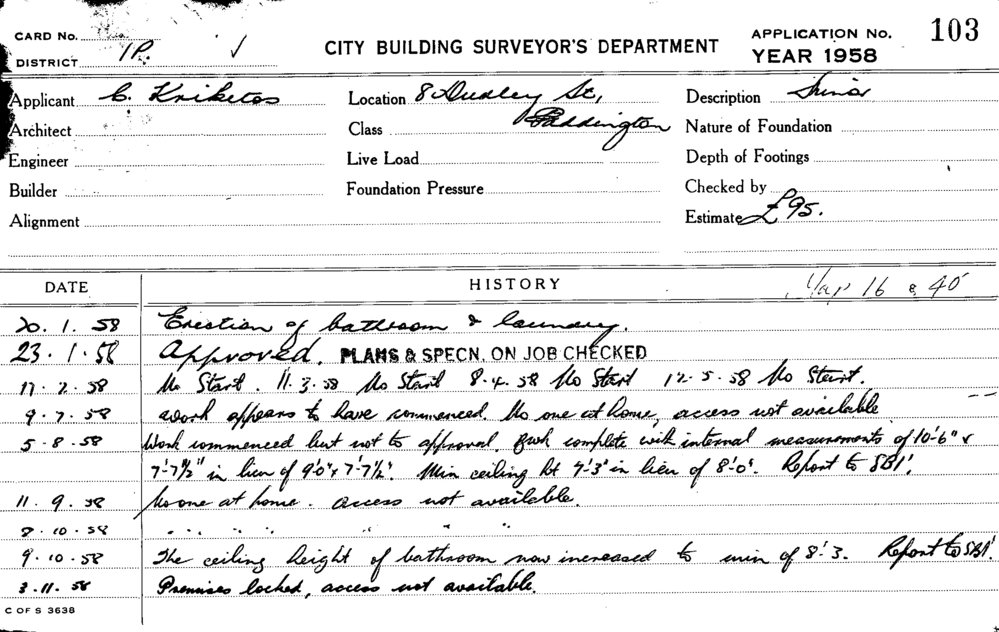 CARD No.
DISTRICT 1P.
CITY BUILDING SURVEYOR'S DEPARTMENT
APPLICATION No. 103
YEAR 1958
Applicant C. Kriketos
Location 8 Dudley St,
Paddington
Description Minor
Architect
Class
Nature of Foundation
Engineer
Live Load
Depth of Footings
Builder
Foundation Pressure
Checked by
Alignment
Estimate £95.
DATE
HISTORY
Map 16 & 40
20. 1. 58 Erection of bathroom & laundry.
23. 1. 58 Approved. PLANS & SPECN. ON JOB CHECKED
17. 2. 58 No Start. 11.3.58 No Start 8.4.58 No Start 12.5.58 No Start.
9. 7. 58 Work appears to have commenced. No one at home, access not available
5. 8. 58 Work commenced but not to approval. complete with internal measurements of 10'-6" x
7'-7½" in lieu of 9'0" x 7'-7½". Min ceiling ht 7'-3" in lieu of 8'-0". Report to SBI.
11. 9. 58 No one at home. Access not available.
8. 10. 58 " " " " " " "
9. 10. 58 The ceiling height of bathroom now increased to min of 8'.3. Report to SBI.
3. 11. 58 Premises locked, access not available.
C OF S 3638